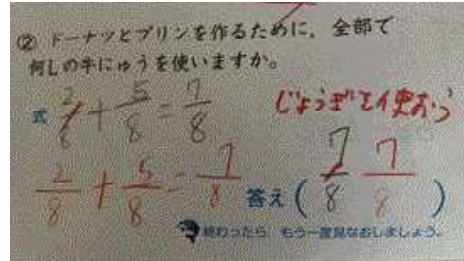 ② ドーナツとプリンを作るために、全部で
何Lの牛にゅうを使いますか。
式 2/8 + 5/8 = 7/8
じょうぎを使おう
2/8 + 5/8 = 7/8
答え ( 7/8 7/8 )
終わったら、もう一度見なおしましょう。